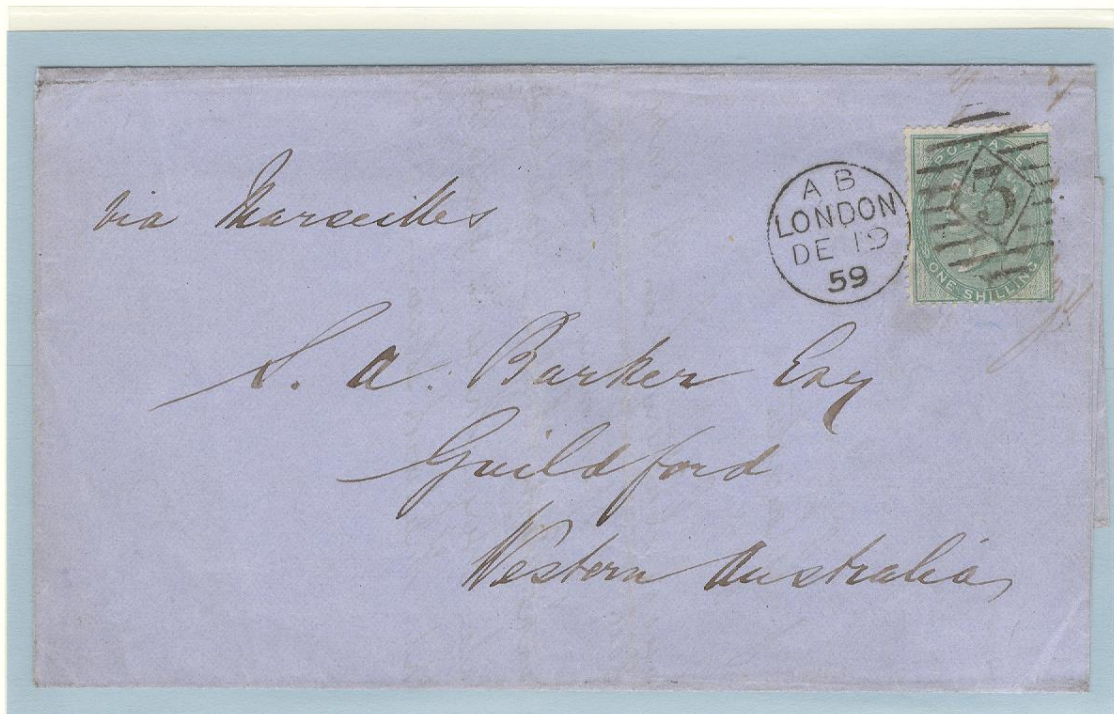 via Marseilles
A B
LONDON
DE 19
59
POSTAGE
3
ONE SHILLING
S. A. Barker Esq
Guildford
Western Australia